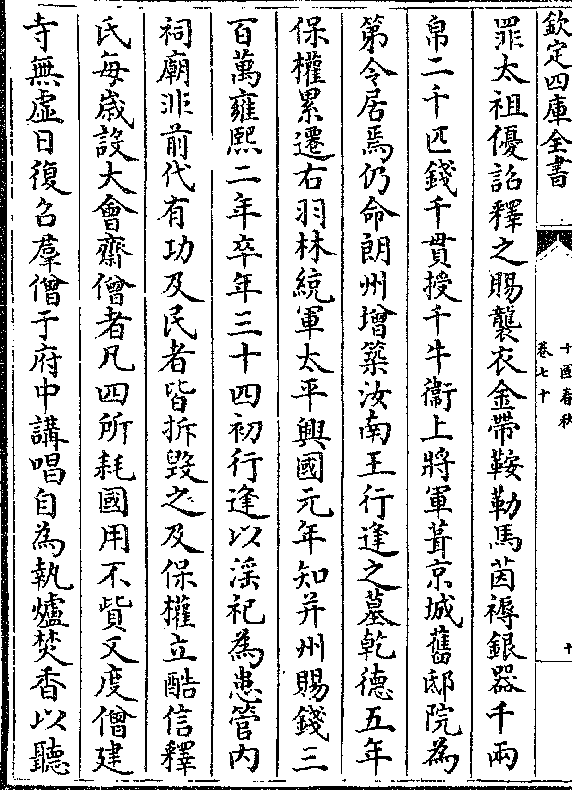 欽定四庫全書
十國春秋
卷七十
十
罪太祖優詔釋之賜襲衣金帶鞍勒馬茵褥銀器千兩
帛二千匹錢千貫授千牛衛上將軍葺京城舊邸院為
第令居焉仍命朗州增築汝南王行逢之墓乾德五年
保權累遷右羽林統軍太平興國元年知并州賜錢三
百萬雍熙二年卒年三十四初行逢以淫祀為患管内
祠廟非前代有功及民者皆拆毀之及保權立酷信釋
氏每歲設大會齋僧者凡四所耗國用不貲又度僧建
寺無虛日復召羣僧于府中講唱自為執爐焚香以聽